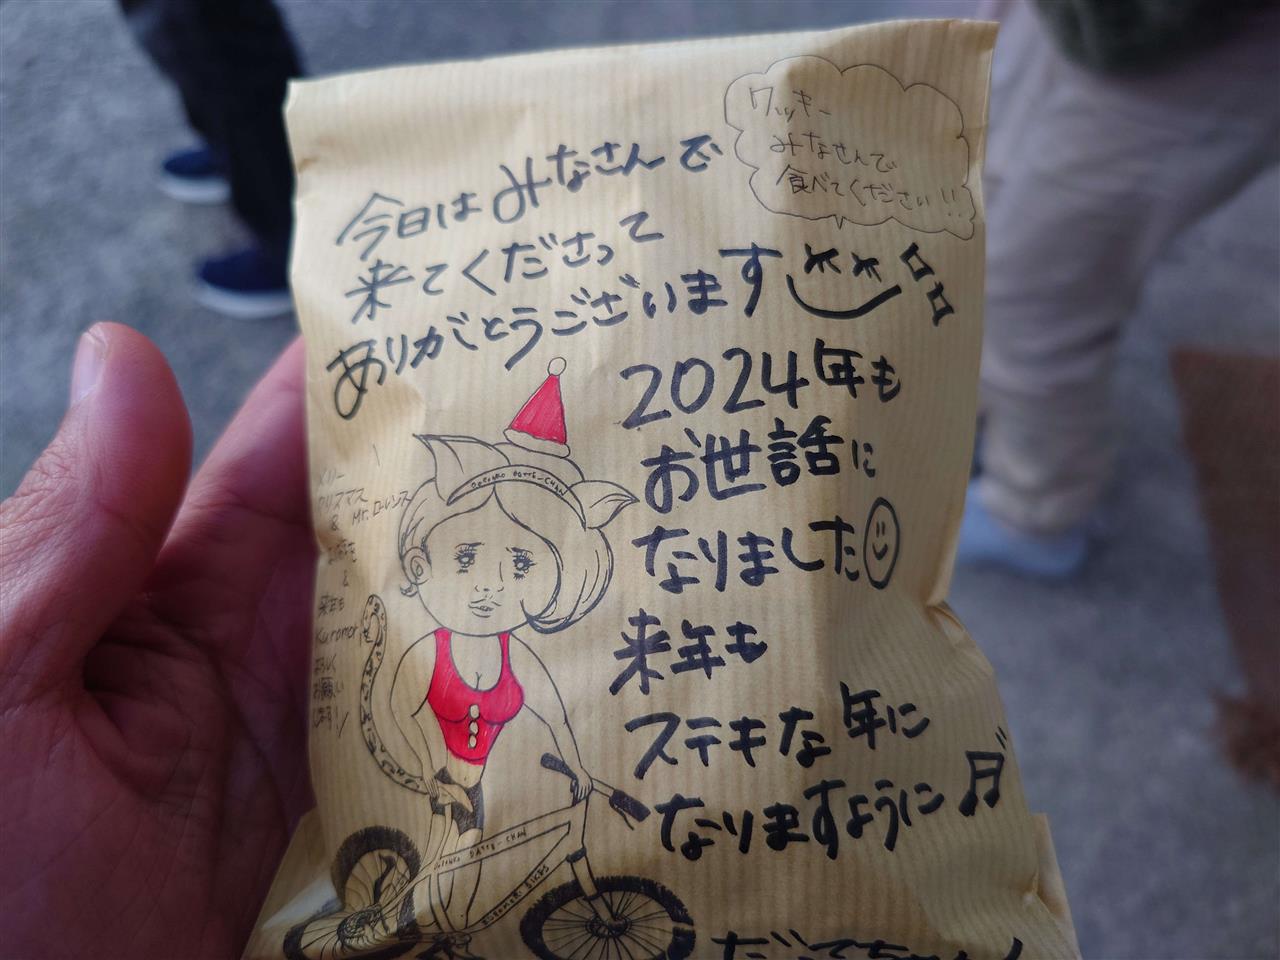 クッキー
みなさんで
食べてください!!
今日はみなさんで
来てくださって
ありがとうございます
2024年も
お世話に
なりました
来年も
ステキな年に
なりますように
メリー
クリスマス
& Mr.ローレンス
&
来年も
Kuromori
よろしく
お願い
します!!
DATTE-CHAN
DATTE-CHAN
KUROMORI BIKES
だってちゃん